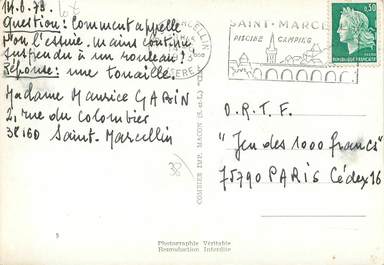 14.6.73.
Question: Comment appelle
t'on l'essuie. mains continu
suspendu à un rouleau?
Réponse: une tournaille.
Madame Maurice GARIN
2, rue du Colombier
38160 Saint-Marcellin
SAINT-MARCE
PISCINE CAMPING
0,30
REPUBLIQUE FRANÇAISE
MARCELLIN
ISERE
O.R.T.F.
"Jeu des 1000 francs"
75790 PARIS Cédex 16
COMBIER IMP. MACON (S.-et-L.)
38
5
Photographie Véritable
Reproduction Interdite